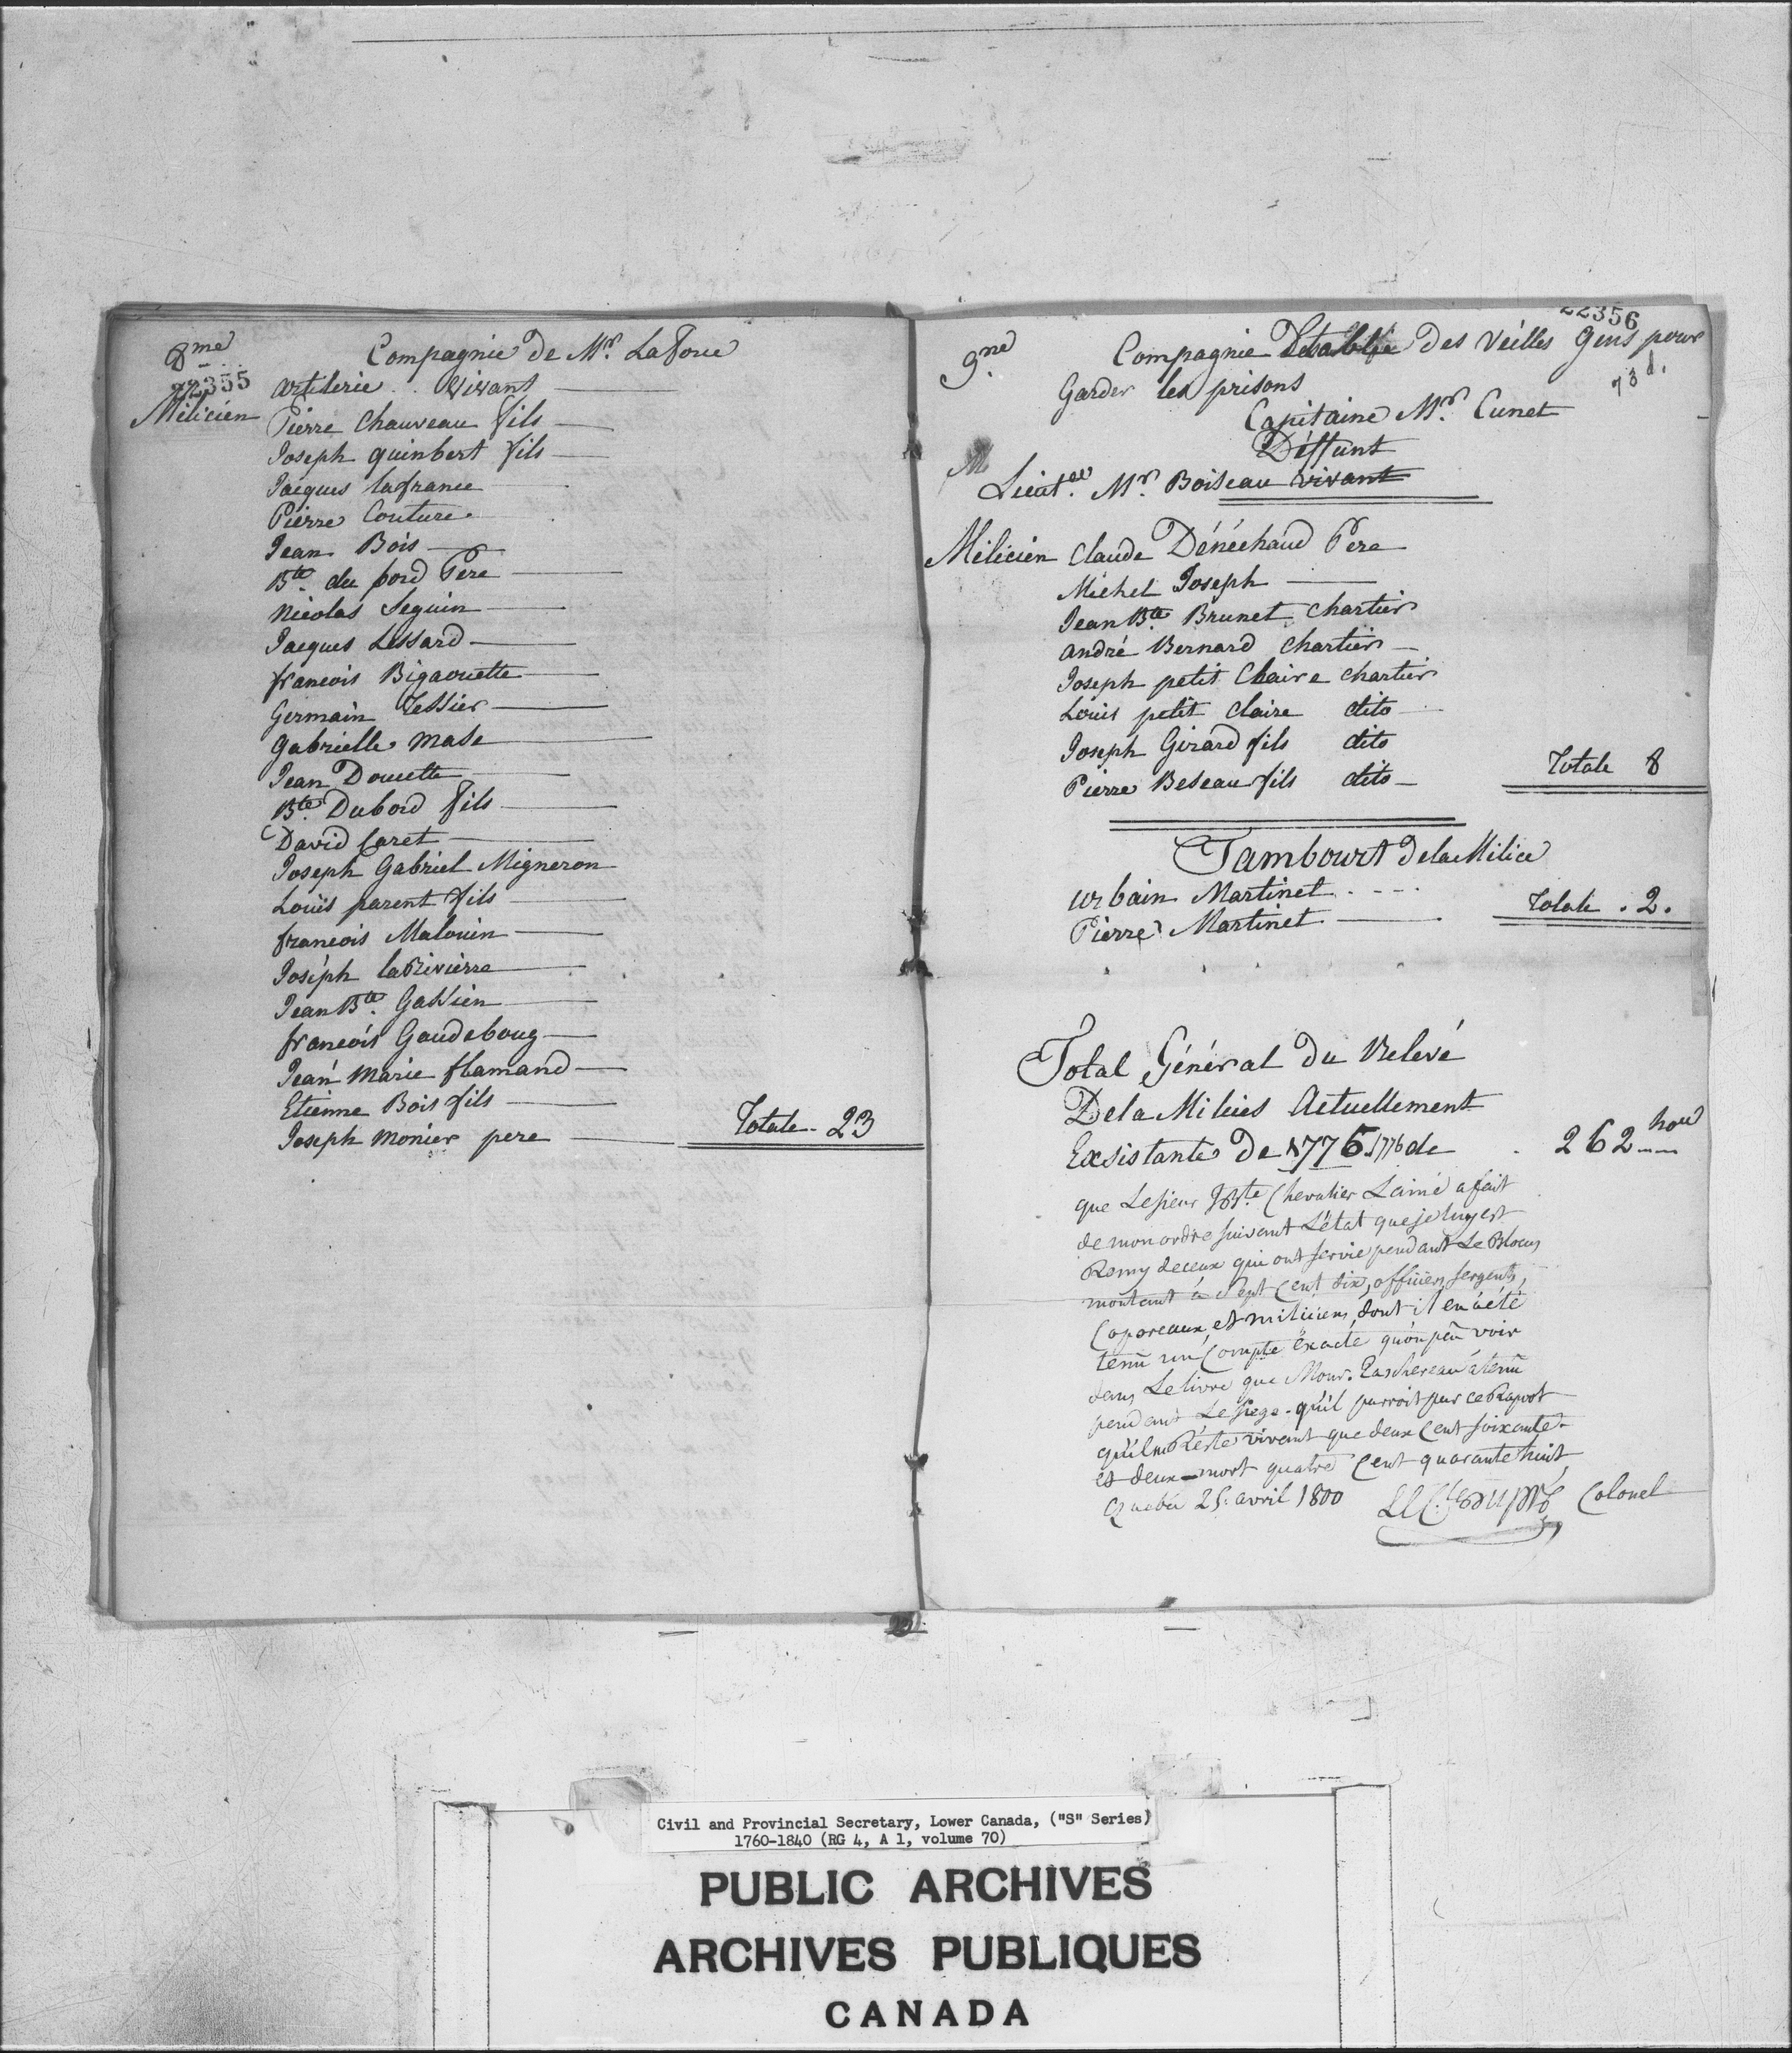 8me Compagnie de Mr. LaForce
22355 artilerie . . Vivant
Milicien Pierre Chauveau fils
Joseph quinbert fils
Jacques lafrance
Pierre Couture
Jean Bois
Bte. du bord Pere
Nicolas Seguin
Jacques Lessard
francois Bigaouette
Germain Tessier
Gabrielle Mase
Jean Doucette
Bte. Dubord fils
David Caret
Joseph Gabriel Migneron
Louis parent fils
francois Malouin
Joséph laRivierre
Jean Bte. Gassien
francois Gaudeboug
Jean Marie flamand
Etienne Bois fils
Joseph Monier pere
Totale - 23
22356
9.me Compagnie Des Veilles Gens pour
73 d.
Garder les prisons
Capitaine Mr. Cunet
Déffunt
Lieut. Mr. Boiseau vivant
Milicien Claude Dénéchaud Pere
Michel Joseph
Jean Bte. Brunet Chartier
andré Bernard Chartier
Joseph petit Claire Chartier
Louis petit Claire dito
Joseph Girard fils dito
Pierre Beseau fils dito
Totale 8
Tambourt De la Milice
Urbain Martinet
Pierre Martinet
Totale . 2.
Total Général Du Relevé
De la Milices Actuellement
Exsistante De 1775 1776 de 262
que Le sieur JBte. Chevalier Lainé a fait
de mon ordre suivant L'état que je luy est
Remy de ceux qui ont servie pendant Le Blocus
montant a Sept Cent dix, officiers sergents,
Caporeaux et miliciens, dont il en a été
tenu un Compte exacte qu'on peu voir
dans Le livre que Monsr. Taschereau a tenu
pendant Le siege - qu'il parroit par ce Raport
qu'il ne Reste vivant que deux Cent soixante
et deux - mort quatre Cent quarante huit
Quebec 25 avril 1800 Colonel
Civil and Provincial Secretary, Lower Canada, ("S" Series)
1760-1840 (RG 4, A 1, volume 70)
PUBLIC ARCHIVES
ARCHIVES PUBLIQUES
CANADA